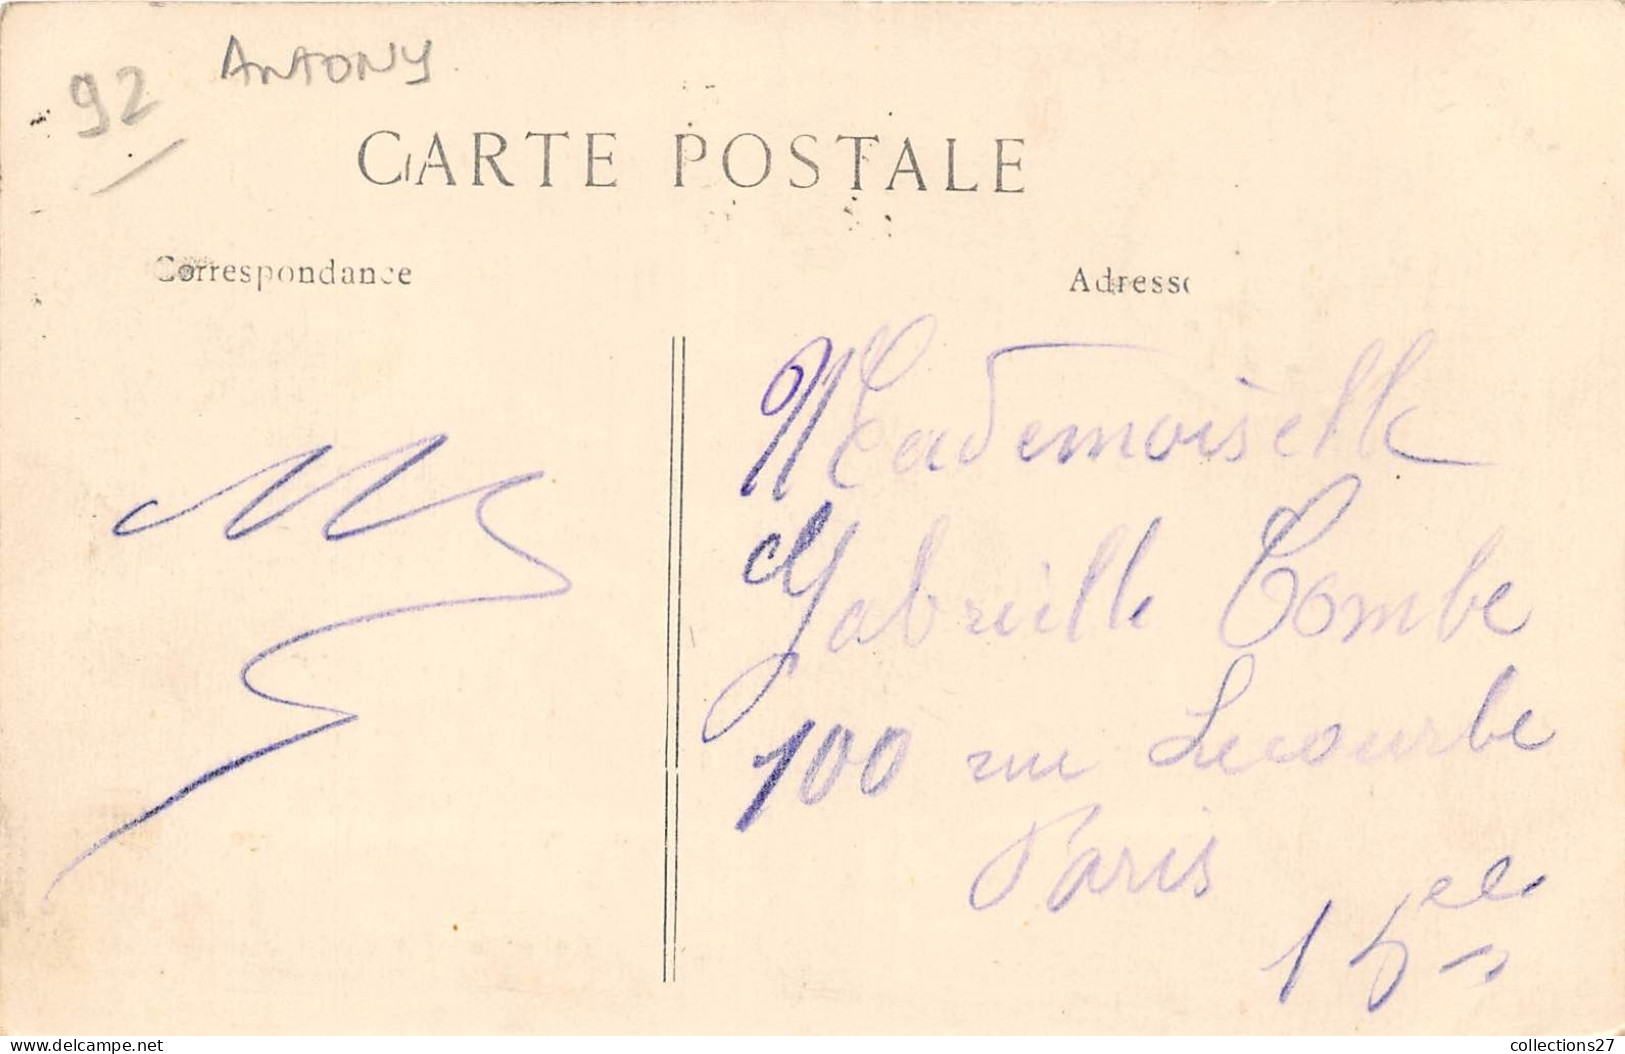 92 ANTONY
CARTE POSTALE
Correspondance
Adresse
Mademoiselle
Gabrielle Combe
100 rue Lecourbe
Paris
15e
delcampe.net
collections27